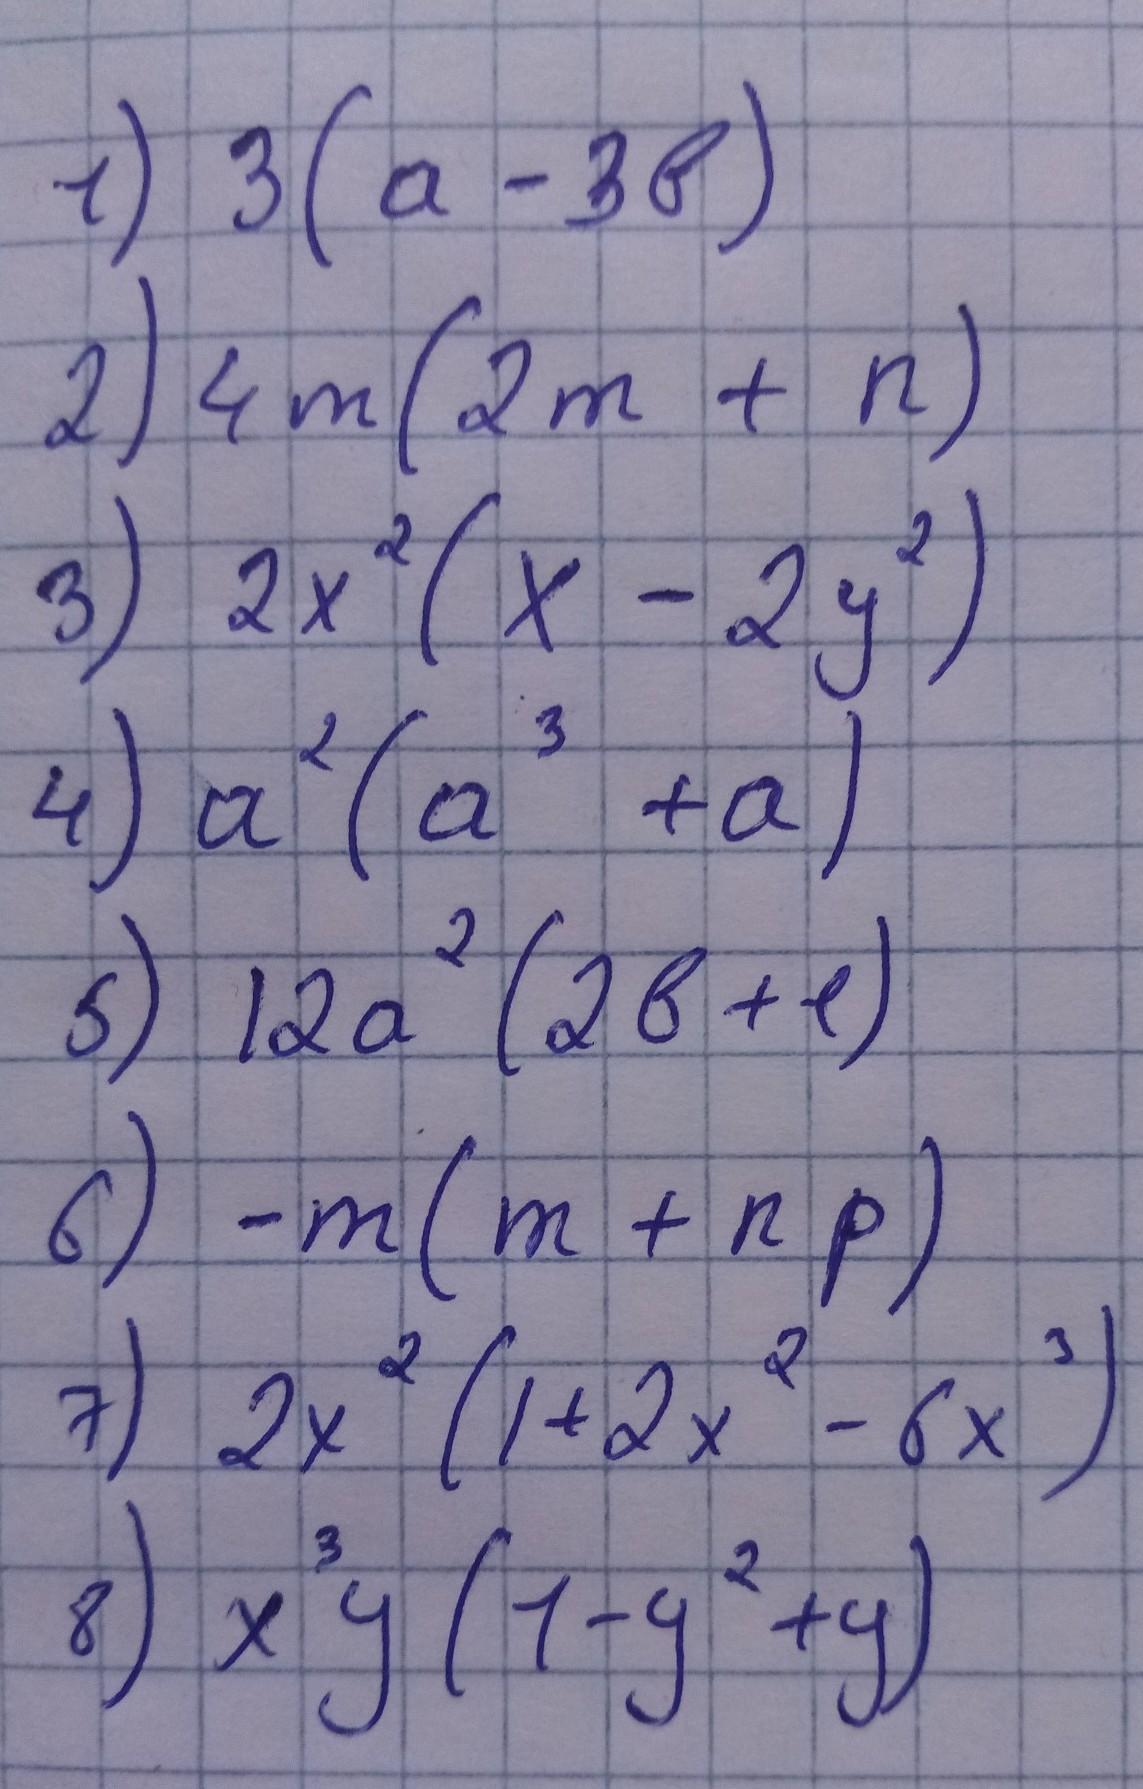 1) 3(a - 3b)
2) 4m(2m + n)
3) 2x²(x - 2y²)
4) a²(a³ + a)
5) 12a²(2b + 1)
6) -m(m + np)
7) 2x²(1 + 2x² - 6x³)
8) x³y(1 - y² + y)